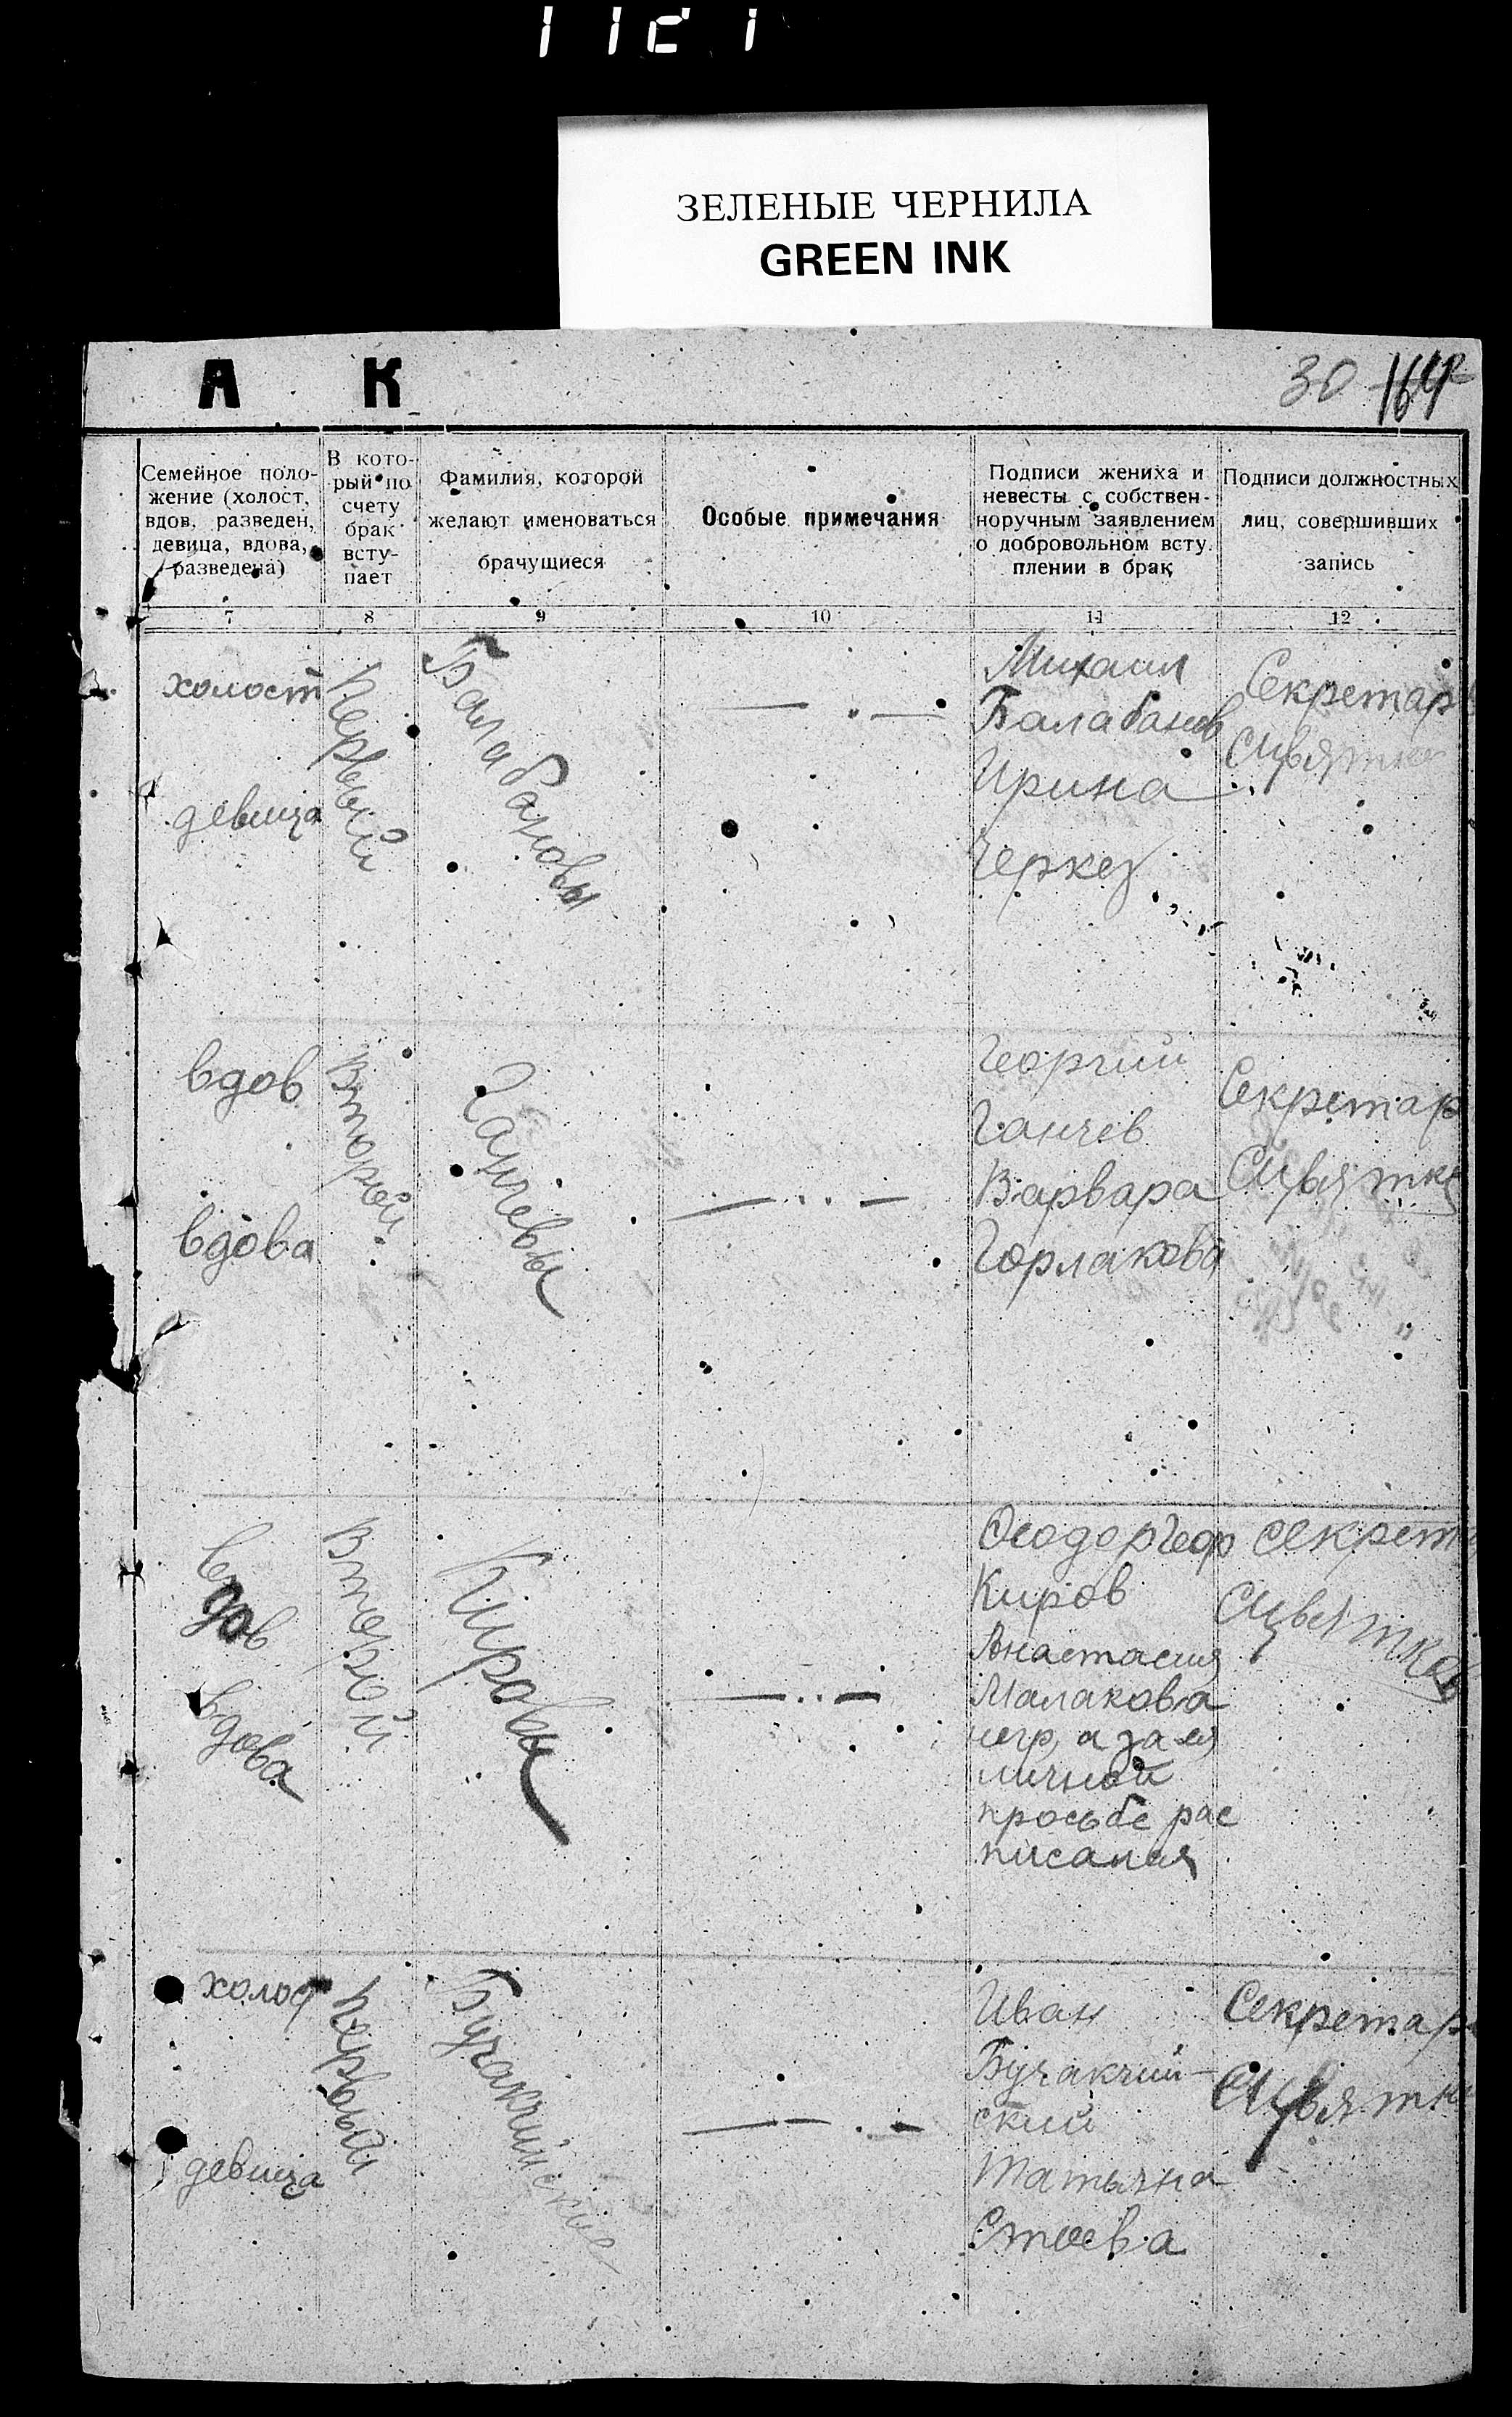 ЗЕЛЕНЫЕ ЧЕРНИЛА
GREEN INK
А К
30 164
Семейное поло-
жение (холост,
вдов, разведен,
девица, вдова,
разведена)
В кото-
рый по
счету
брак
всту-
пает
Фамилия, которой
желают именоваться
брачущиеся
Особые примечания
Подписи жениха и
невесты с собствен-
норучным заявлением
о добровольном всту.
плении в брак
Подписи должностных
лиц, совершивших
запись
7 8 9 10 11 12
холост
девица
Первый
Балабановы
Михаил
Балабанов
Ирина
Черкез
Секретар
вдов
вдова
Второй
Ганчевы
Георгий
Ганчев
Варвара
Горлакова
Секретар
вдов
вдова
Второй
Кировы
Феодор Геор
Киров
Анастасия
Малакова
негр, а за ея
личной
просьбе рас
писания
секрет
холост
девица
Первый
Бучакчийские
Иван
Бучакчий-
ский
Татьяна
Стоева
Секретар